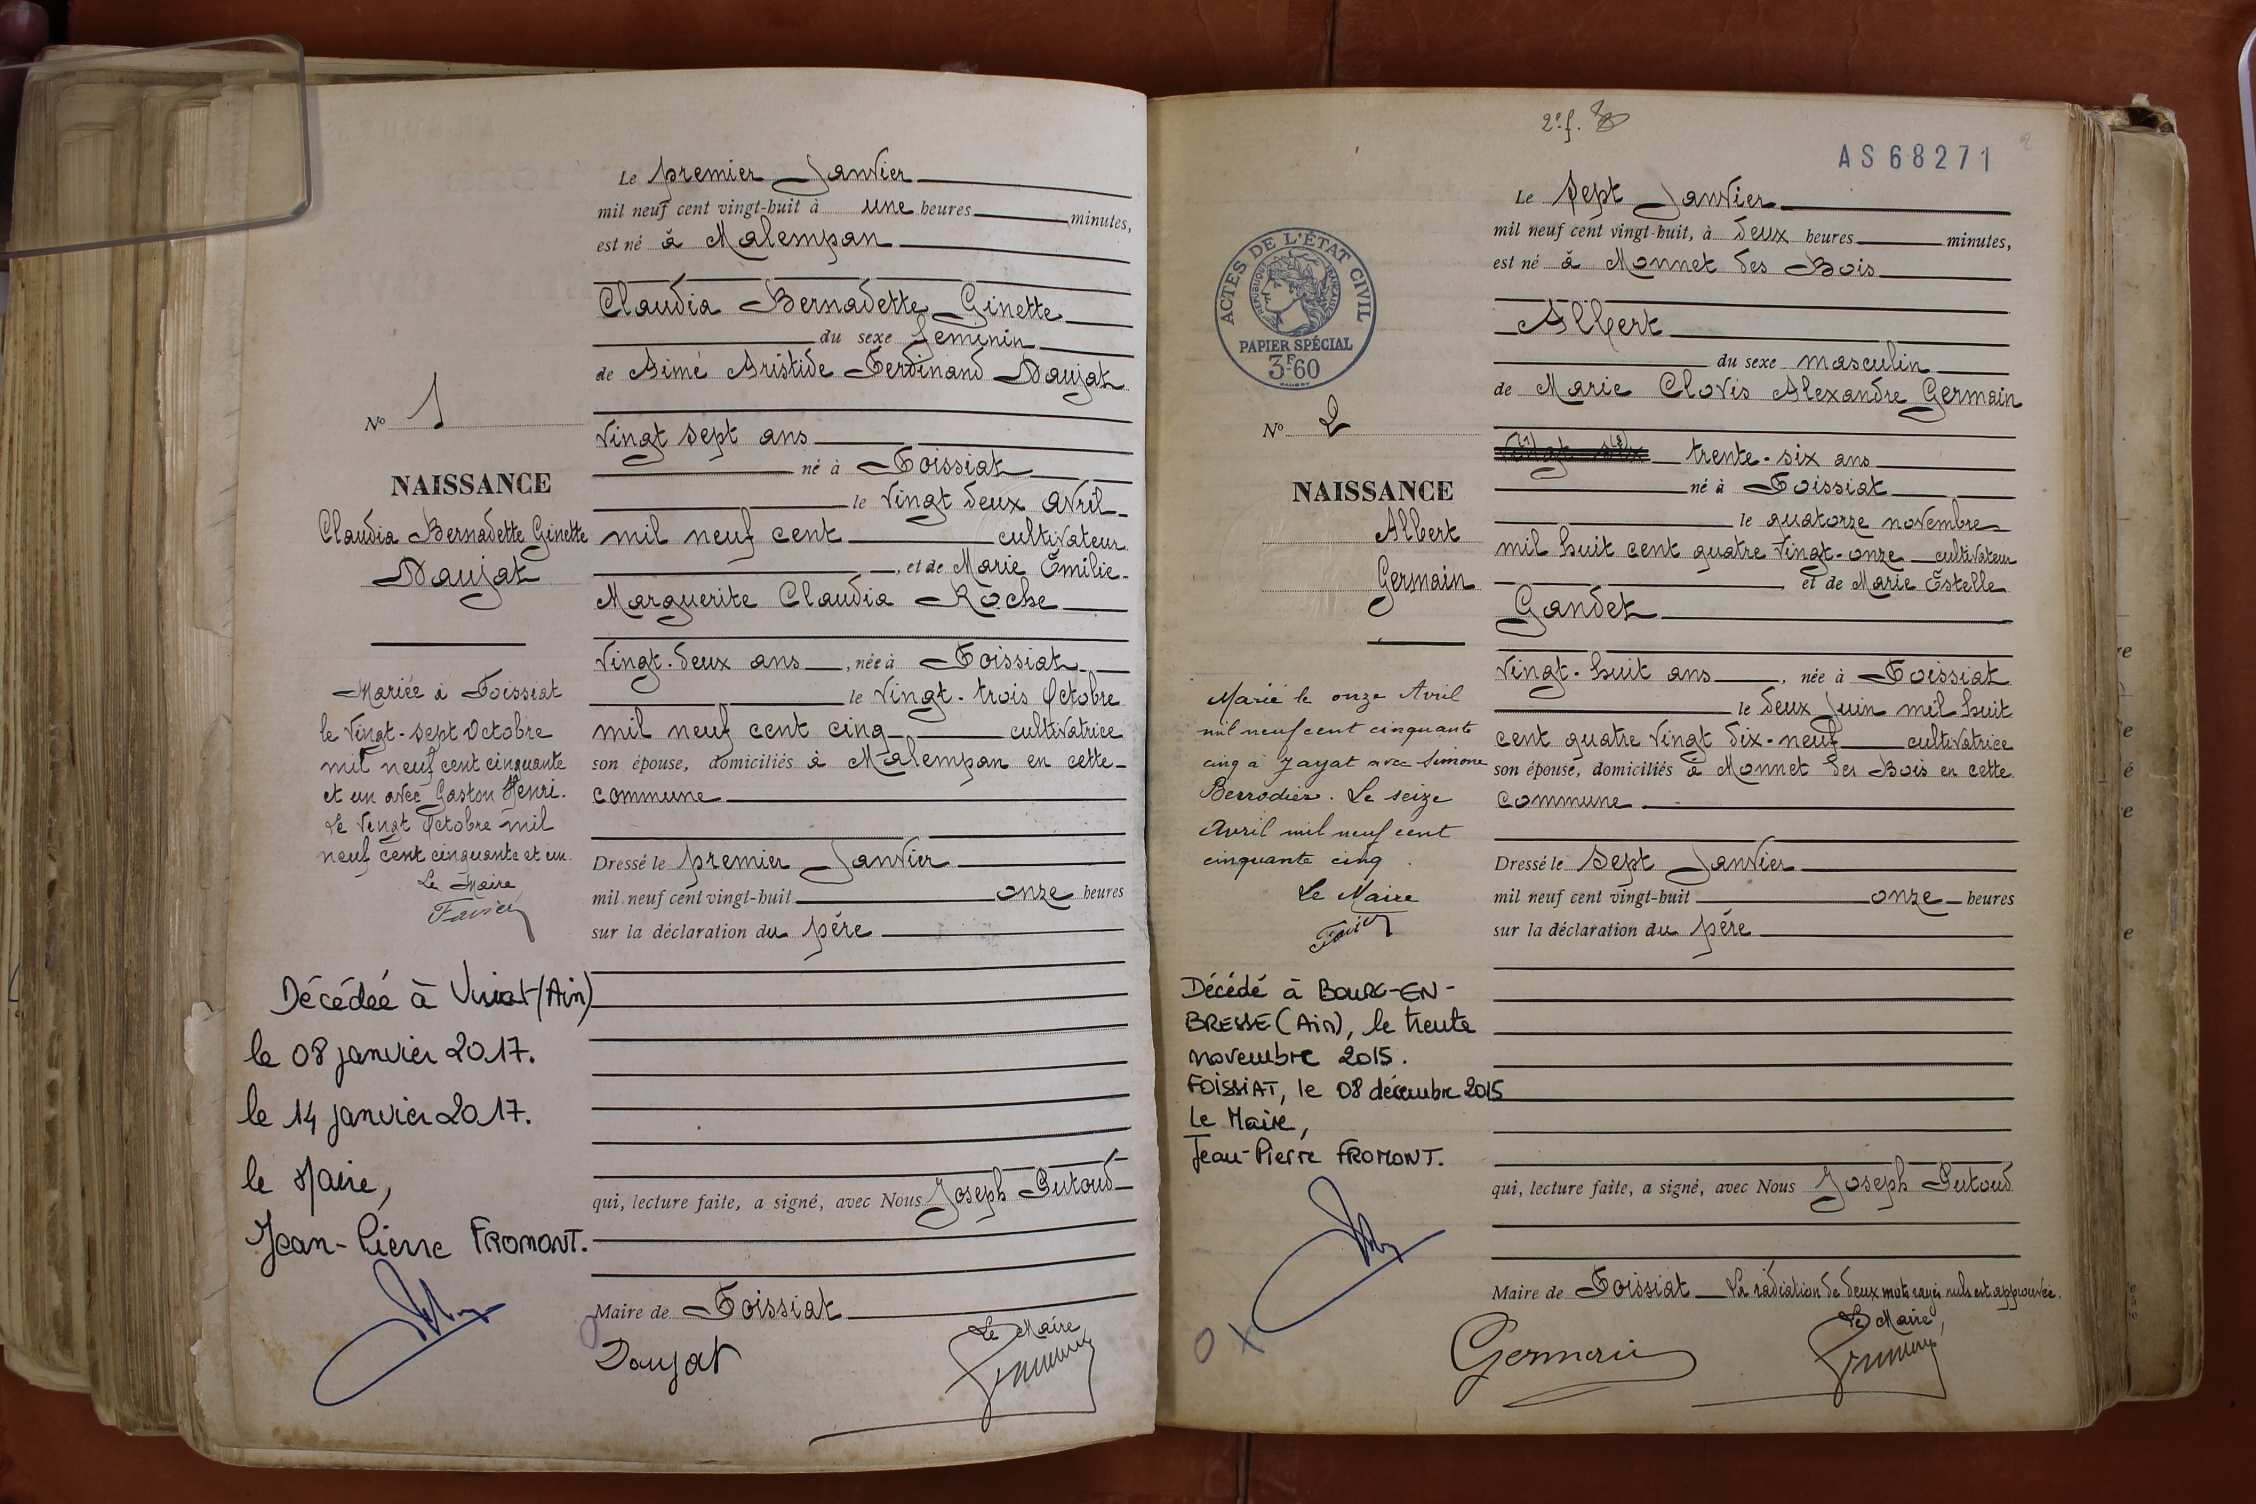 Le premier Janvier
mil neuf cent vingt-huit à une heures minutes,
est né à Malempan
Claudia Bernadette Ginette
du sexe feminin
de Aimé Aristide Ferdinand Daujat
vingt sept ans
né à Foissiat
le vingt deux avril
mil neuf cent cultivateur
, et de Marie Émilie
Marguerite Claudia Roche
vingt-deux ans , née à Foissiat
le vingt-trois Octobre
mil neuf cent cinq cultivatrice
son épouse, domiciliés à Malempan en cette
commune
Dressé le premier Janvier
mil neuf cent vingt-huit onze heures
sur la déclaration du père
qui, lecture faite, a signé, avec Nous Joseph Putoud
Maire de Foissiat
Le Maire
Daujat
No 1
NAISSANCE
Claudia Bernadette Ginette
Daujat
Mariée à Foissiat
le vingt-sept Octobre
mil neuf cent cinquante
et un avec Gaston Henri.
Le vingt Octobre mil
neuf cent cinquante et un.
Le Maire
Favier
Décédée à Viriat (Ain)
le 08 janvier 2017.
le 14 janvier 2017.
le Maire,
Jean-Pierre FROMONT.
2e f.
AS68271
Le sept Janvier
mil neuf cent vingt-huit, à deux heures minutes,
est né à Monnet des Bois
Albert
du sexe masculin
de Marie Clovis Alexandre Germain
vingt six trente-six ans
né à Foissiat
le quatorze novembre
mil huit cent quatre vingt-onze cultivateur
et de Marie Estelle
Gandet
vingt-huit ans , née à Foissiat
le deux Juin mil huit
cent quatre vingt dix-neuf cultivatrice
son épouse, domiciliés à Monnet des Bois en cette
commune
Dressé le sept Janvier
mil neuf cent vingt-huit onze heures
sur la déclaration du père
qui, lecture faite, a signé, avec Nous Joseph Putoud
Maire de Foissiat La radiation de deux mots rayés nuls est approuvée.
Le Maire,
Germain
ACTES DE L'ÉTAT CIVIL
RÉPUBLIQUE FRANÇAISE
PAPIER SPÉCIAL
3F60
No 2
NAISSANCE
Albert
Germain
Marié le onze Avril
mil neuf cent cinquante
cinq à Jayat avec Simone
Berrodier. Le seize
Avril mil neuf cent
cinquante cinq.
Le Maire
Favier
Décédé à BOURG-EN-
BRESSE (Ain), le trente
novembre 2015.
FOISSIAT, le 08 décembre 2015
Le Maire,
Jean-Pierre FROMONT.